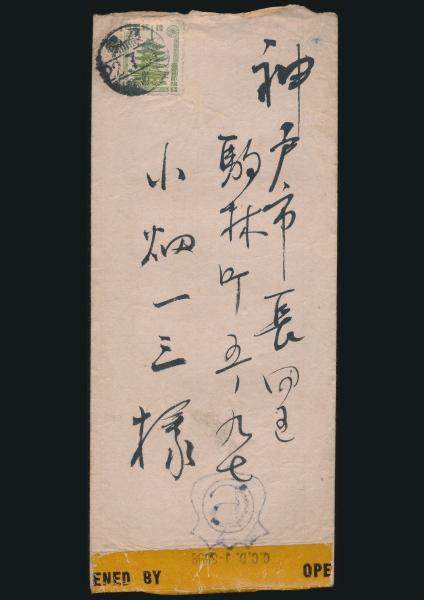 神戸市長田区
駒林町五ノ九七
小畑一三様
C.C.D. J-
ENED BY
OPE